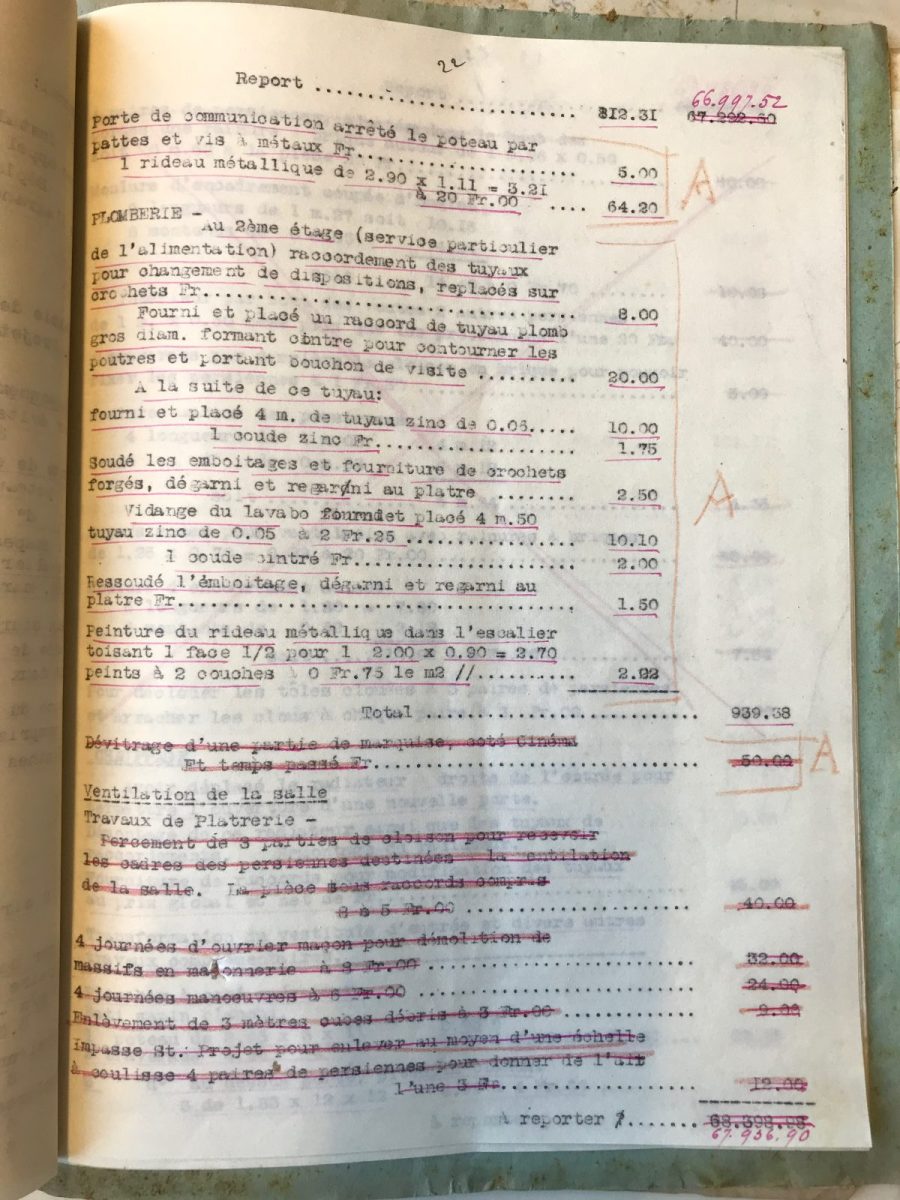 22
Report .................................. 812.31 67.292.60
66.997.52
Porte de communication arrêté le poteau par
pattes et vis à métaux Fr......................... 5.00
1 rideau métallique de 2.90 x 1.11 = 3.21
à 20 Fr.00 .... 64.20
A
PLOMBERIE -
Au 2ème étage (service particulier
de l'alimentation) raccordement des tuyaux
pour changement de dispositions, replacés sur
crochets Fr........................................ 8.00
Fourni et placé un raccord de tuyau plomb
gros diam. formant cintre pour contourner les
poutres et portant bouchon de visite .......... 20.00
A la suite de ce tuyau:
fourni et placé 4 m. de tuyau zinc de 0.06..... 10.00
1 coude zinc Fr..................... 1.75
Soudé les emboitages et fourniture de crochets
forgés, dégarni et regarni au platre ........ 2.50
A
Vidange du lavabo fourni et placé 4 m.50
tuyau zinc de 0.05 à 2 Fr.25 ................. 10.10
1 coude cintré Fr....................... 2.00
Ressoudé l'emboitage, dégarni et regarni au
platre Fr....................................... 1.50
Peinture du rideau métallique dans l'escalier
toisant 1 face 1/2 pour 1 2.00 x 0.90 = 2.70
peints à 2 couches à 0 Fr.75 le m2 //.......... 2.22
Total ........................... 939.38
Dévitrage d'une partie de marquise, coté Cinéma
Et temps passé Fr................................ 50.00
A
Ventilation de la salle
Travaux de Platrerie -
Percement de 3 parties de cloison pour recevoir
les cadres des persiennes destinées la ventilation
de la salle. La pièce sous raccords compris
8 à 5 Fr.00 ........................ 40.00
4 journées d'ouvrier maçon pour démolition de
massifs en maçonnerie à 8 Fr.00 .......................... 32.00
4 journées manoeuvres à 6 Fr.00 ........................... 24.00
Enlèvement de 3 mètres cubes débris à 3 Fr.00 ............. 9.00
Impasse St. Projet pour enlever au moyen d'une échelle
à coulisse 4 paires de persiennes pour donner de l'air
l'une 3 Fr.................... 12.00
A reporter ........ 68.398.98
67.936.90